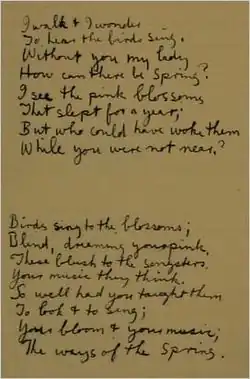 I walk & I wonder
To hear the birds sing.
Without you my lady
How can there be Spring?
I see the pink blossoms
That slept for a year;
But who could have woke them
While you were not near?
Birds sing to the blossoms;
Blind, dreaming your pink.
These blush to the songsters,
Your music they think.
So well had you taught them
To look & to sing;
Your bloom & your music;
The ways of the Spring.